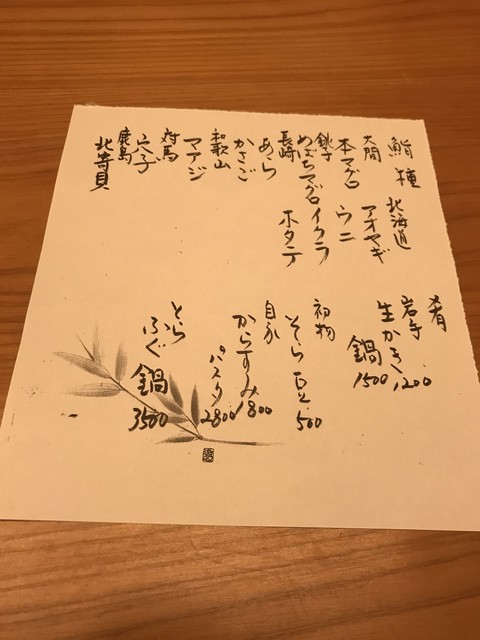 鮨種
大間
本マグロ
銚子
めばちマグロ
長崎
あら
かさご
和歌山
マアジ
対馬
穴子
鹿島
北寄貝
北海道
アオヤギ
ウニ
イクラ
ホタテ
肴
岩手
生かき 1200
鍋 1500
初物
そら豆 500
自家
からすみ 1800
パスタ 2800
とら
ふぐ鍋 3500